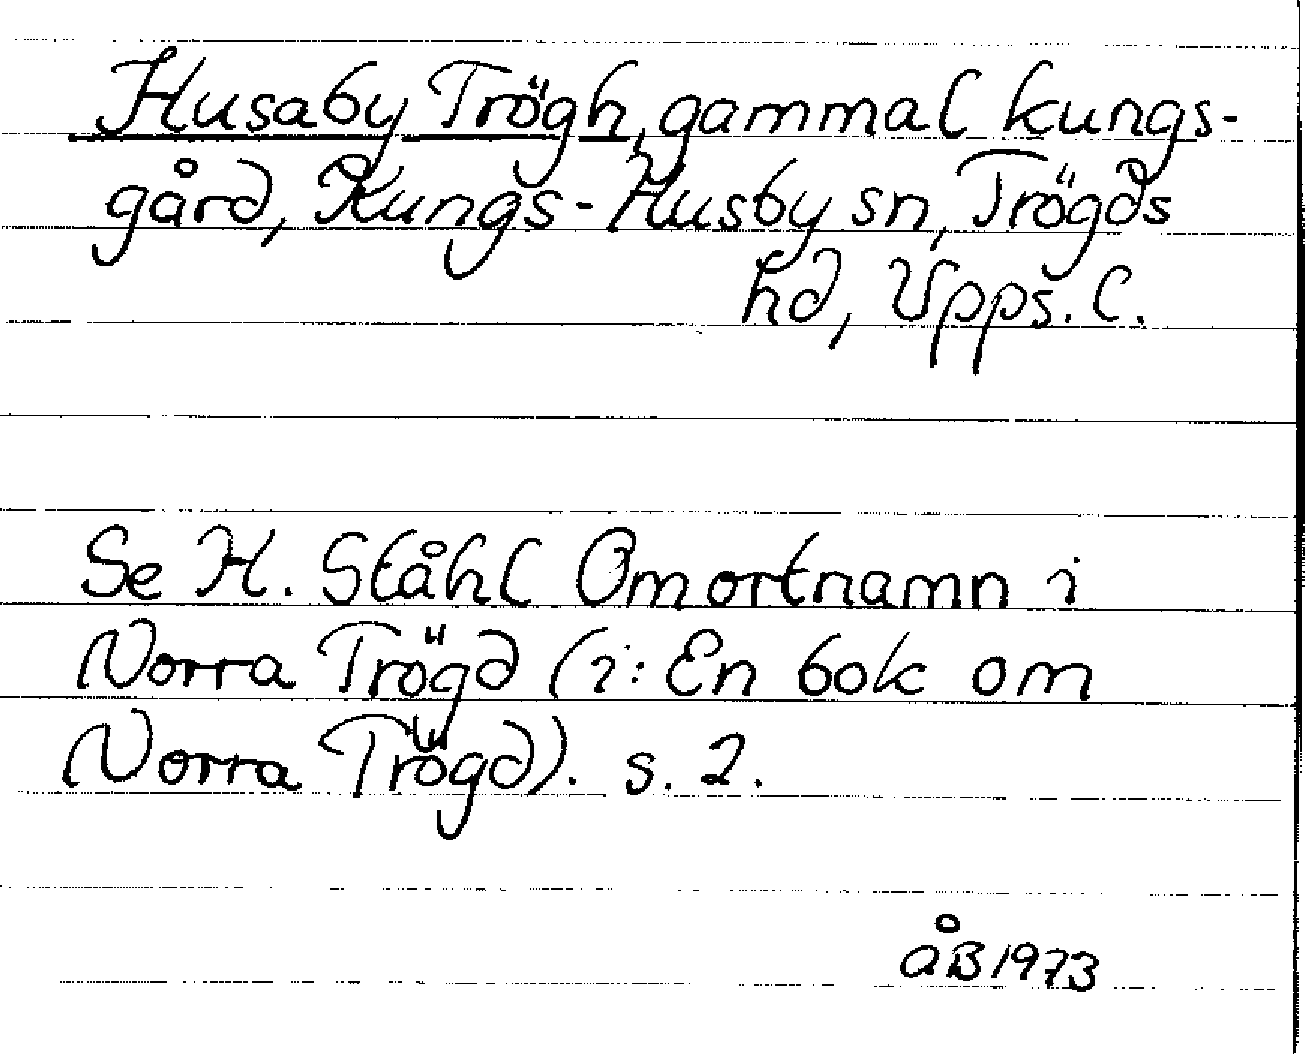 Husaby Trögh, gammal kungs-
gård, Kungs-Husby sn, Trögds
hd, Upps. l.
Se H. Ståhl Om ortnamn i
Norra Trögd (i: En bok om
Norra Trögd). s. 2.
ÅB 1973